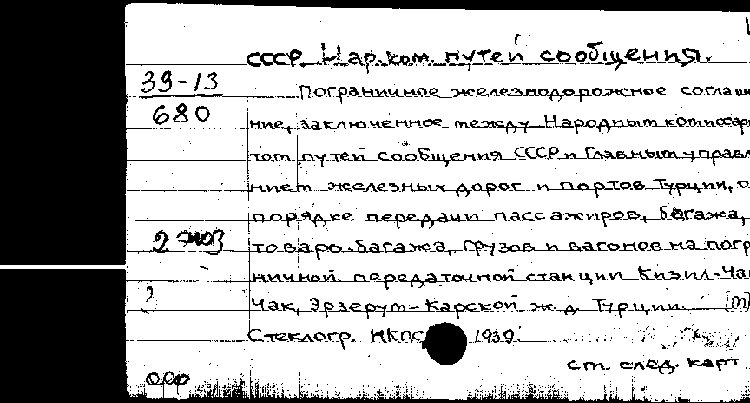 СССР. Нар. ком. путей сообщения.
39-13
680
Пограничное железнодорожное соглаше
ние, заключенное между Народным комиссари
том путей сообщения СССР и Главным управл
нием железных дорог и портов Турции, о
порядке передачи пассажиров, багажа,
2 экз
товаро-багажа, грузов и вагонов на погр
ничной передаточной станции Кизил-Ча
чак, Эрзерум-Карской ж.д. Турции.
Стеклогр. НКПС 1930.
ст. след. карт